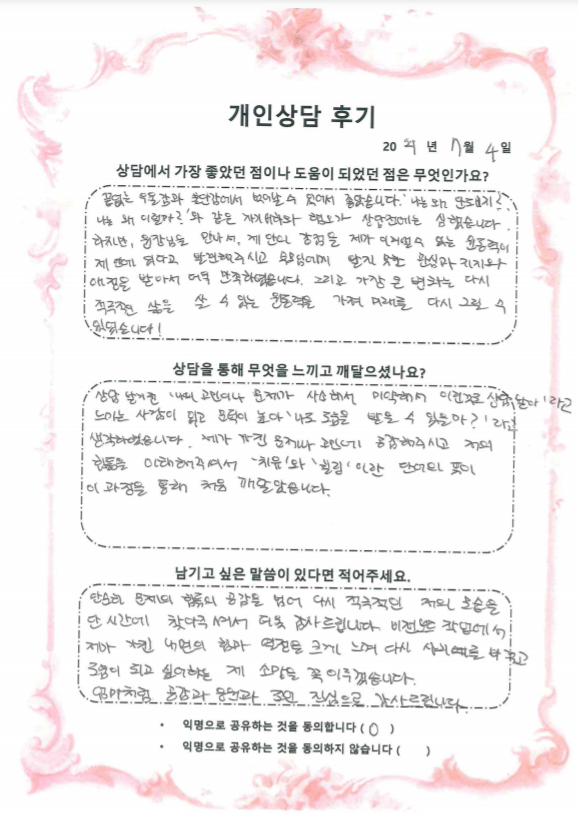 개인상담 후기
20 21 년 7 월 4 일
상담에서 가장 좋았던 점이나 도움이 되었던 점은 무엇인가요?
끝없는 우울감과 불안감에서 벗어날 수 있어서 좋았습니다. '나는 왜 안되지?',
나는 왜 이럴까?'와 같은 자기비하와 혐오가 상담전에는 심했습니다.
하지만, 원장님을 만나서, 제 안의 강점을 제가 이겨낼 수 있는 원동력이
제 안에 있다고 발견해주시고 부모님에게 받지 못한 관심과 지지와
애정을 받아서 더욱 만족하였습니다. 그리고 가장 큰 변화는 다시
적극적인 삶을 살 수 있는 원동력을 가져 미래를 다시 그릴 수
있었습니다!
상담을 통해 무엇을 느끼고 깨달으셨나요?
상담 받기전 '나의 고민이나 문제가 사소해서 이런걸로 상담받나'라고
느끼는 사람이 많고 문턱이 높다 '나도 도움을 받을 수 있을까?'라고
생각하였습니다. 제가 가진 문제나 고민에 공감해주시고 저의
힘듦을 이해해주셔서 '치유'와 '힐링'이란 단어의 뜻이
이 과정을 통해 처음 깨달았습니다.
남기고 싶은 말씀이 있다면 적어주세요.
단순히 문제의 공감을 넘어 다시 적극적인 저의 모습을
단시간에 찾아주셔서 더욱 감사드립니다. 비전 작업에서
제가 가진 내면의 힘과 열정을 크게 느껴 다시 사회에 주고
도움이 되고 싶어하는 제 소망을 꼭 이루겠습니다.
엄마처럼 공감과 응원과 조언 진심으로 감사드립니다.
• 익명으로 공유하는 것을 동의합니다 ( O )
• 익명으로 공유하는 것을 동의하지 않습니다 ( )